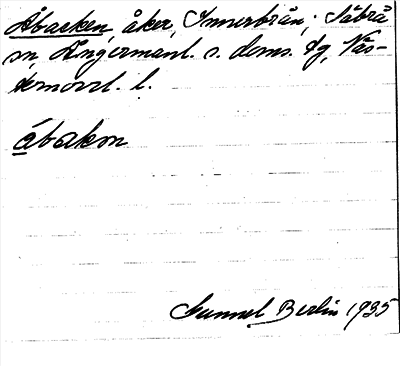 Åbacken, åker, Innerbrån; Säbrå
sn, Ångermanl. s. doms. tg, Väs-
ternorrl. l.
åbakɘn
Gunnel Berlin 1935